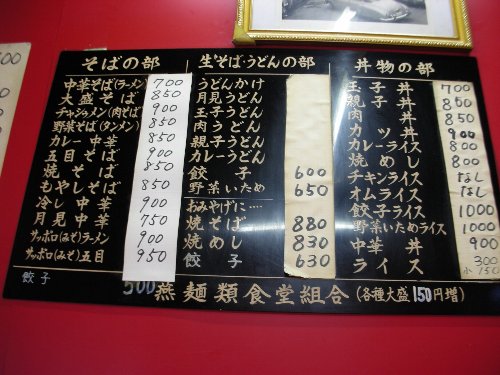 そばの部
中華そば(ラーメン) 700
大盛そば 850
チャシュウメン(肉そば) 900
野菜そば(タンメン) 850
カレー中華 850
五目そば 900
焼そば 850
もやしそば 850
冷し中華 900
月見中華 750
サッポロ(みそ)ラーメン 900
サッポロ(みそ)五目 950
餃子 500
生そば・うどんの部
うどんかけ
月見うどん
玉子うどん
肉うどん
親子うどん
カレーうどん
餃子 600
野菜いため 650
おみやげに‥‥
焼そば 880
焼めし 830
餃子 630
丼物の部
玉子丼 700
親子丼 850
肉丼 850
カツ丼 900
カレーライス 800
焼めし 800
チキンライス なし
オムライス なし
餃子ライス 1000
野菜いためライス 1000
中華丼 900
ライス 300
小150
燕麺類食堂組合(各種大盛150円増)